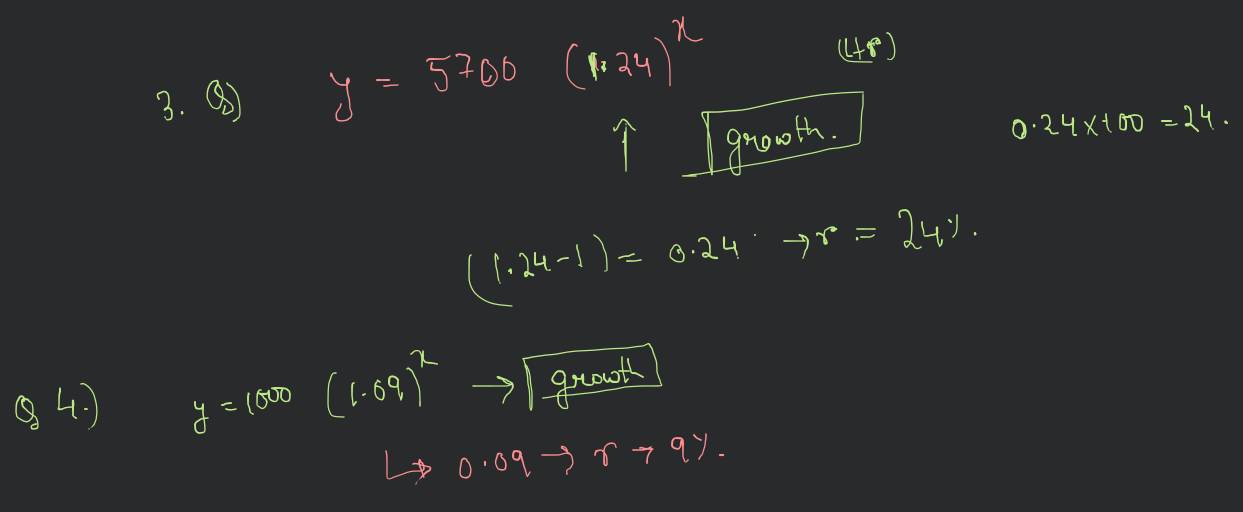 3. Q) y = 5700 (1.24)^x (1+r)
↑ growth. 0.24 x 100 = 24.
(1.24-1) = 0.24 → r = 24%.
Q 4.) y = 1000 (1.09)^x → growth
↳ 0.09 → r → 9%.